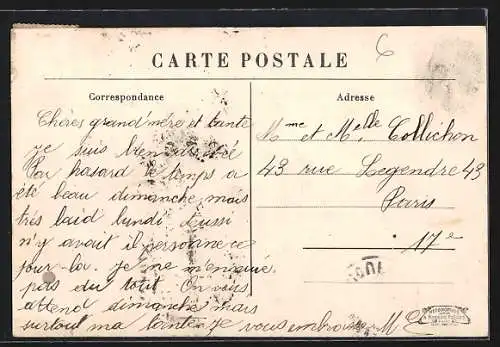 CARTE POSTALE
Correspondance
Chères grand'mère et tante
Je suis bien arrivé
Par hasard le temps a
été beau dimanche, mais
très laid lundi. Aussi
n'y avait il personne ce
jour-là. Je me m'ennuie
pas du tout. On vous
attend dimanche mais
surtout ma tante. Je vous embrasse M
Adresse
Mme et Melle Collichon
43 rue Legendre 43
Paris
17e